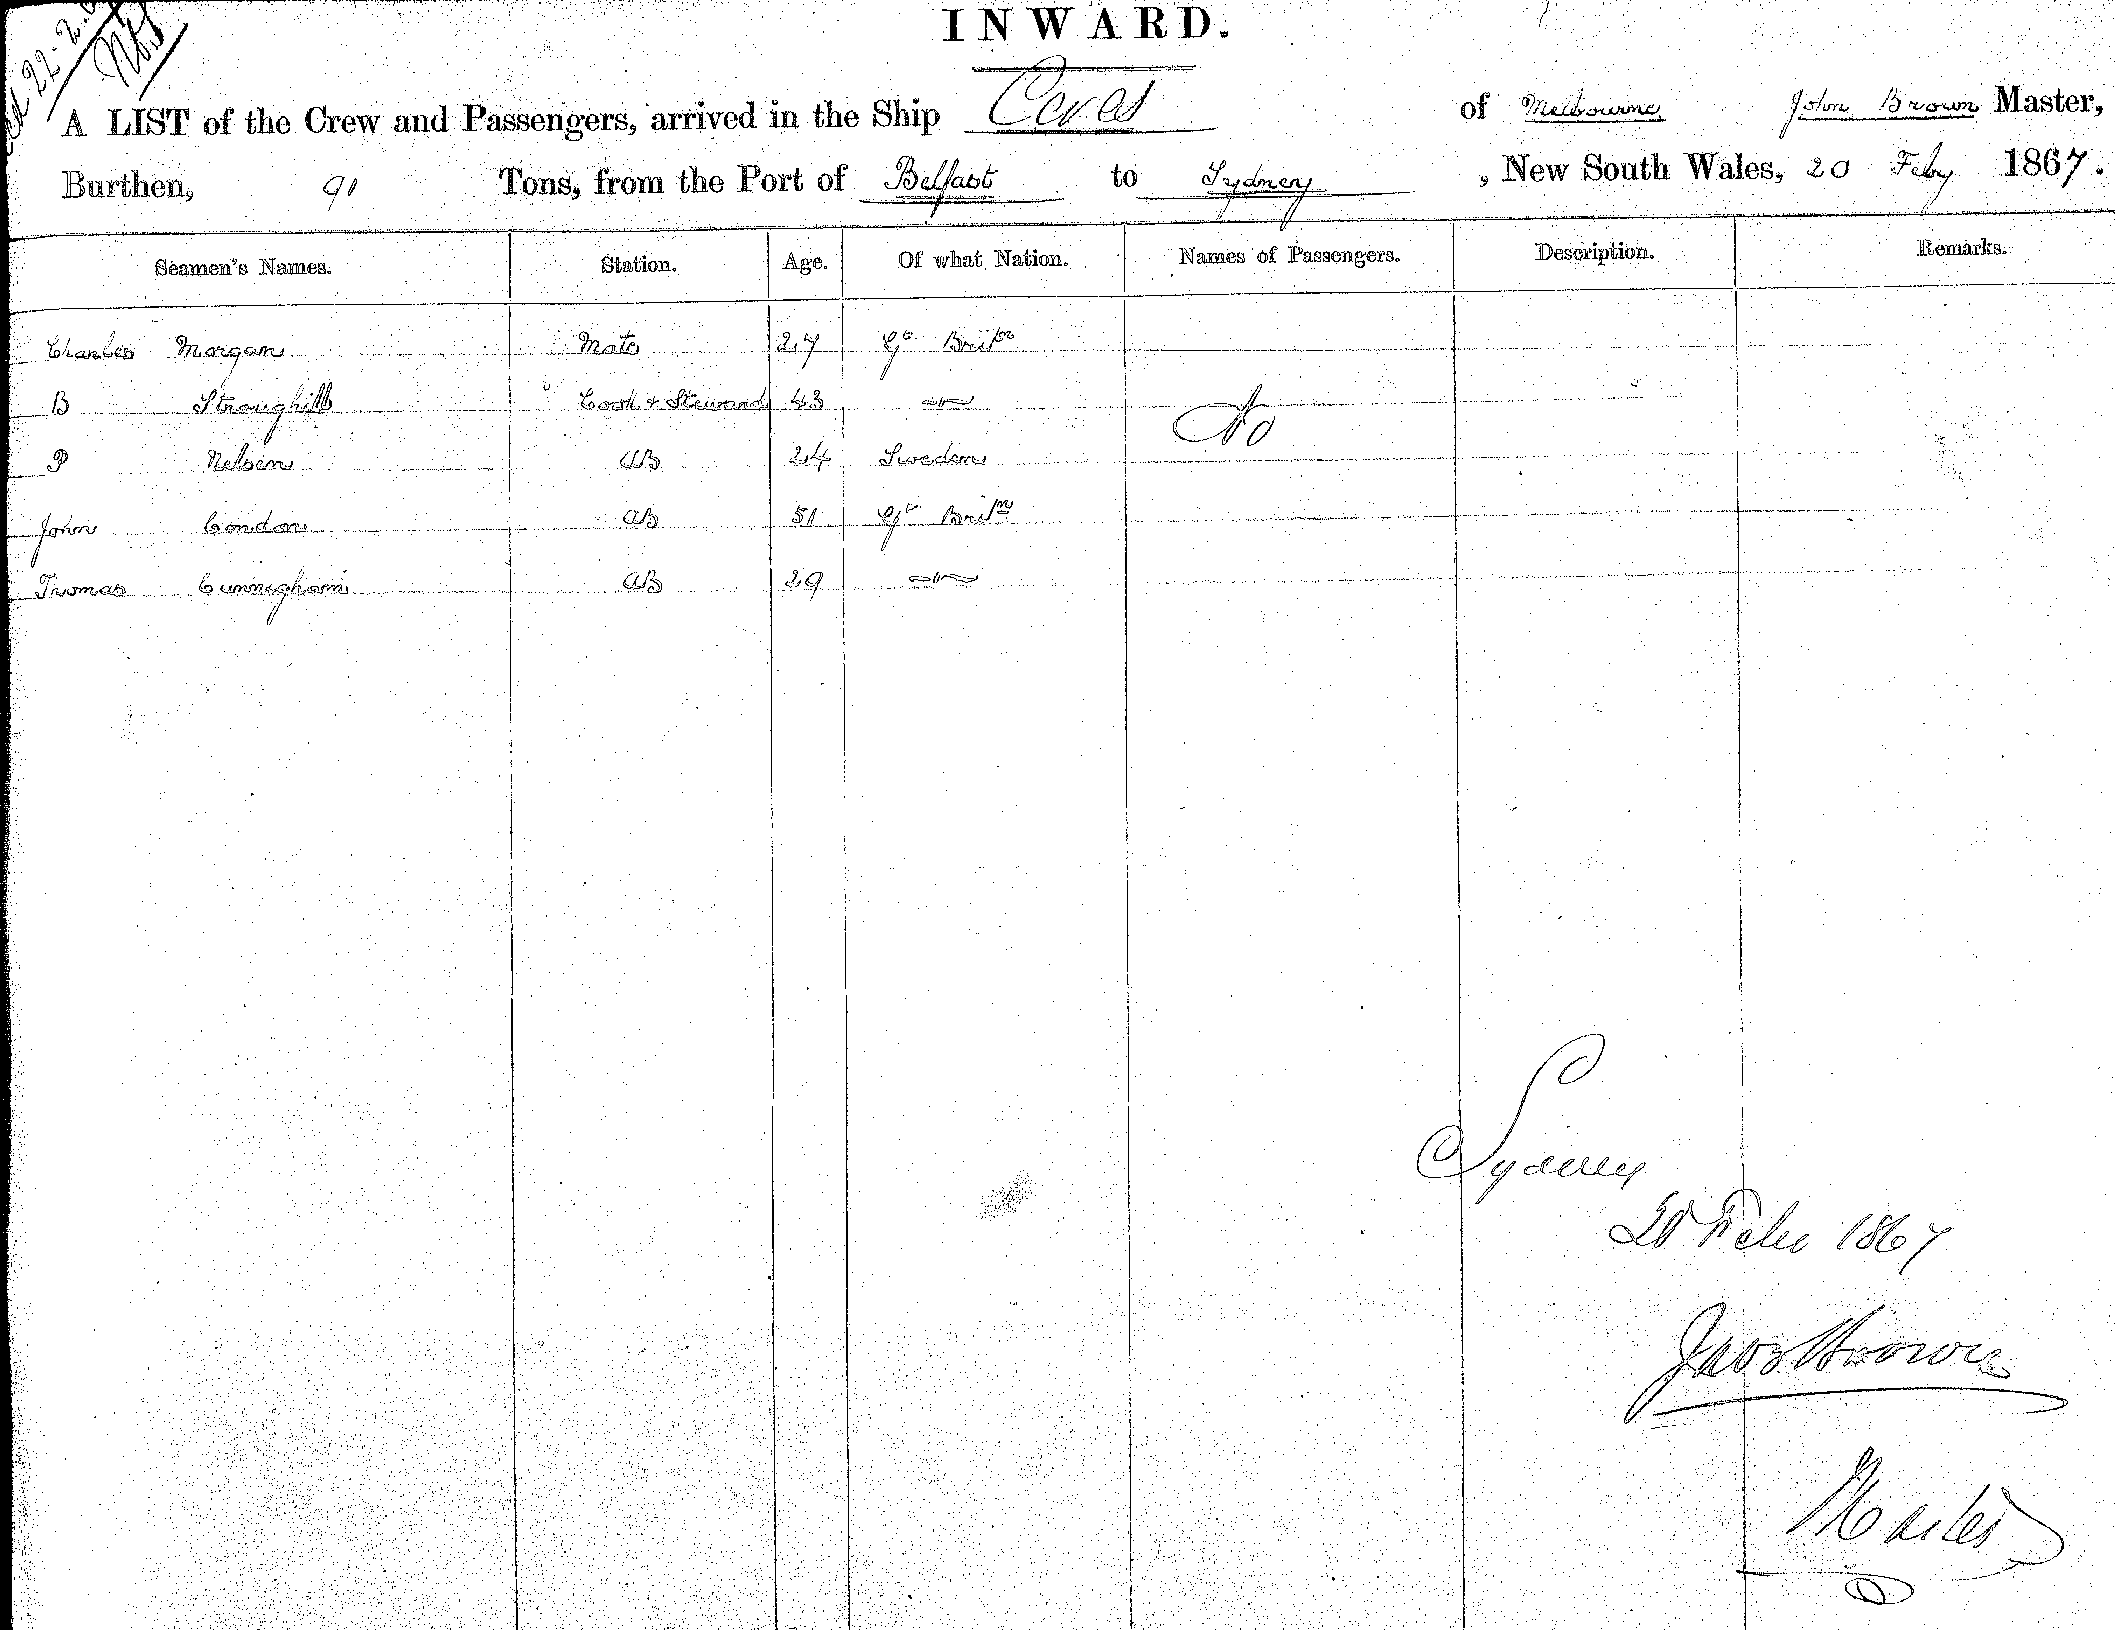 22-2-
INWARD.
A LIST of the Crew and Passengers, arrived in the Ship Ceres of Melbourne John Brown Master,
Burthen, 91 Tons, from the Port of Belfast to Sydney, New South Wales, 20 Feby 1867.
Seamen's Names. Station. Age. Of what Nation. Names of Passengers. Description. Remarks.
Charles Morgan Mate 27 Gt Britn
B Stroughill Cook & Steward 43 —"— No
P Nelsen AB 24 Sweden
John Condon AB 51 Gt Britn
Thomas Cunnigham AB 29 —"—
Sydney
20 Feby 1867
Brown
Master